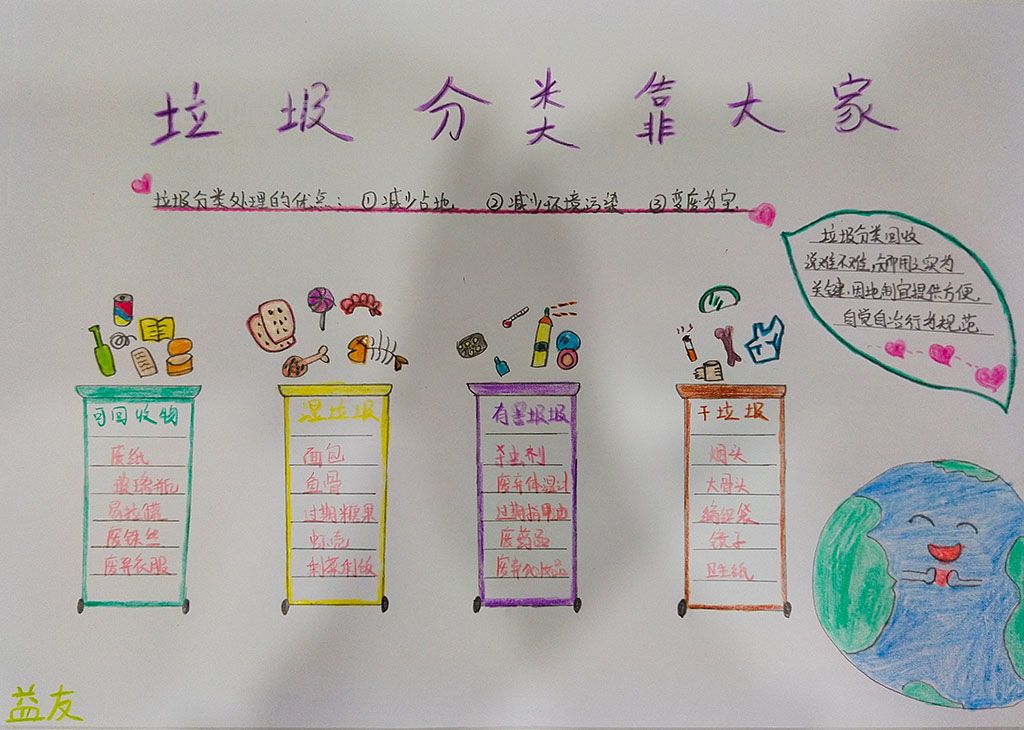 垃圾分类靠大家
垃圾分类处理的优点: ①减少占地 ②减少环境污染 ③变废为宝.
垃圾分类回收
说难不难,分即用之实为
关键.因地制宜提供方便.
自觉自治行为规范.
可回收物
废纸
玻璃瓶
易拉罐
废铁丝
废弃衣服
湿垃圾
面包
鱼骨
过期糖果
虾壳
剩菜剩饭
有害圾圾
杀虫剂
废弃体温计
过期指甲油
废药品
废弃化妆品
干垃圾
烟头
大骨头
编织袋
镜子
卫生纸
益友